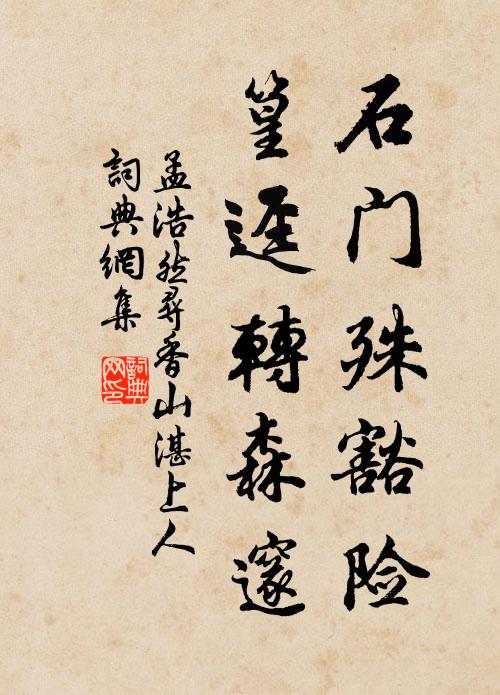 石门殊豁险
篁逕轉森邃
孟浩然尋香山湛上人
詞典網集
詞典
网印